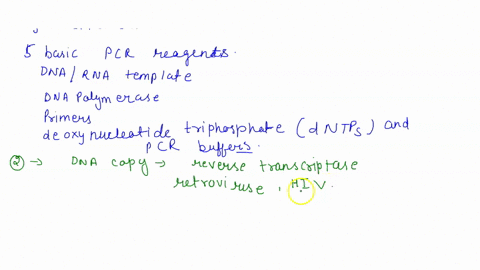 5 basic PCR reagents.
DNA/RNA template
DNA Polymerase
Primers
deoxynucleotide triphosphate (dNTPs) and
PCR buffers.
② → DNA copy → reverse transcriptase
retroviruse, HIV.